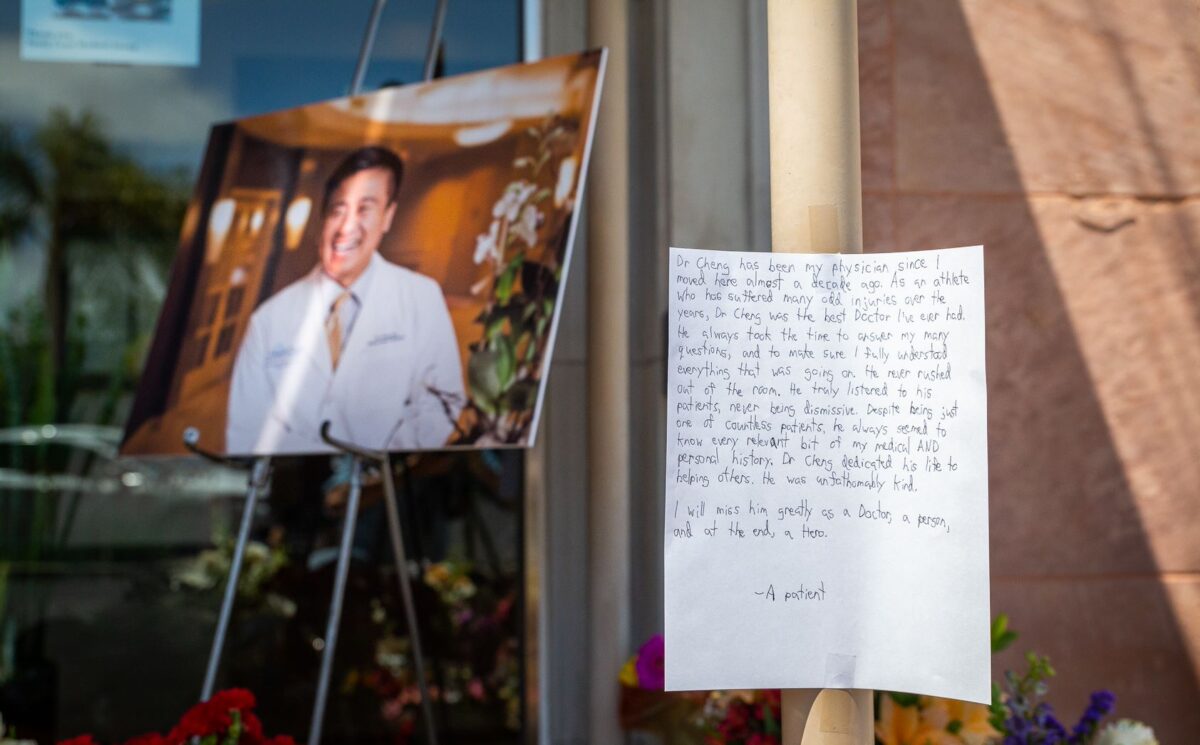 Dr Cheng has been my physician since I
moved here almost a decade ago. As an athlete
who has suffered many odd injuries over the
years, Dr Cheng was the best Doctor I've ever had.
He always took the time to answer my many
questions, and to make sure I fully understood
everything that was going on. He never rushed
out of the room. He truly listened to his
patients, never being dismissive. Despite being just
one of countless patients, he always seemed to
know every relevant bit of my medical AND
personal history. Dr Cheng dedicated his life to
helping others. He was unfathomably kind.
I will miss him greatly as a Doctor, a person,
and at the end, a Hero.
~A patient